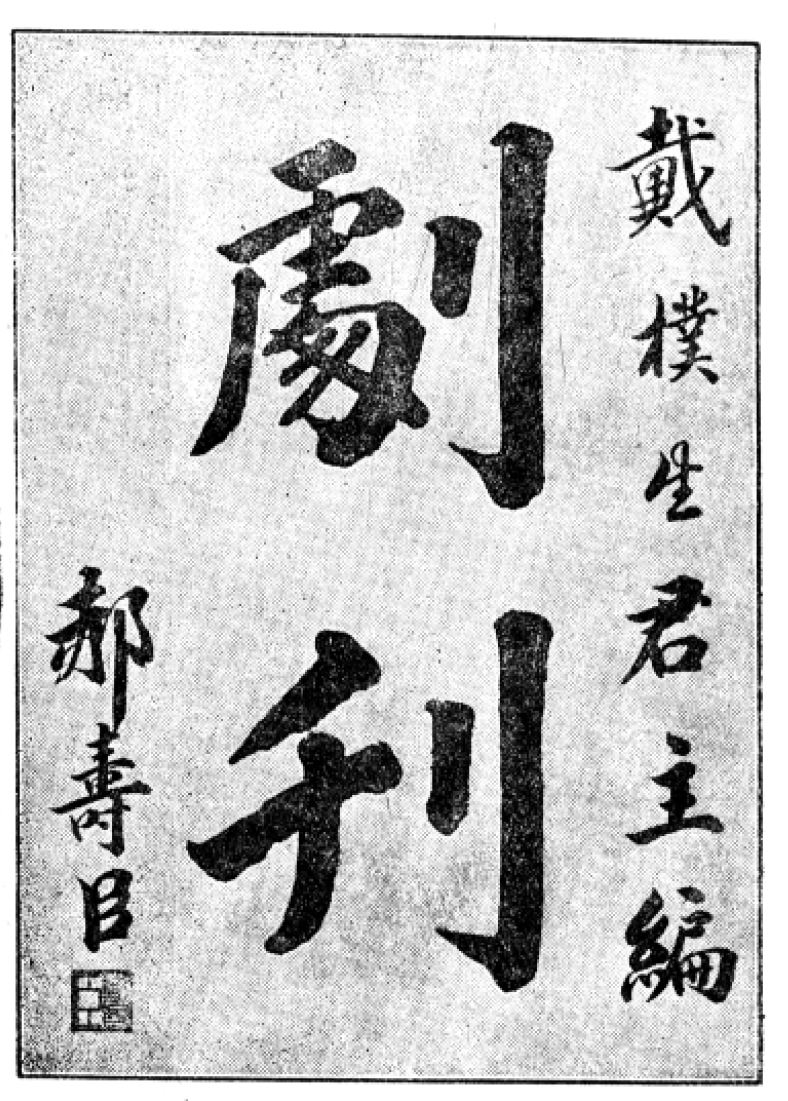 戴樸生君主編
劇刊
郝壽臣